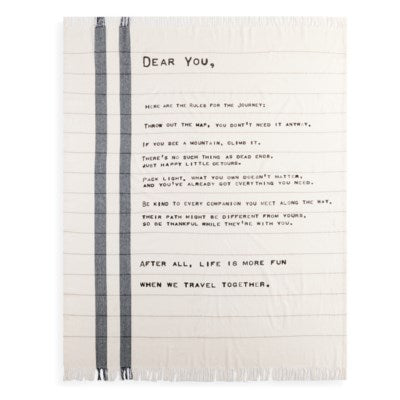 DEAR YOU,
HERE ARE THE RULES FOR THE JOURNEY:
THROW OUT THE MAP, YOU DON'T NEED IT ANYWAY.
IF YOU SEE A MOUNTAIN, CLIMB IT.
THERE'S NO SUCH THING AS DEAD ENDS,
JUST HAPPY LITTLE DETOURS.
PACK LIGHT, WHAT YOU OWN DOESN'T MATTER,
AND YOU'VE ALREADY GOT EVERYTHING YOU NEED.
BE KIND TO EVERY COMPANION YOU MEET ALONG THE WAY,
THEIR PATH MIGHT BE DIFFERENT FROM YOURS,
SO BE THANKFUL WHILE THEY'RE WITH YOU.
AFTER ALL, LIFE IS MORE FUN
WHEN WE TRAVEL TOGETHER.